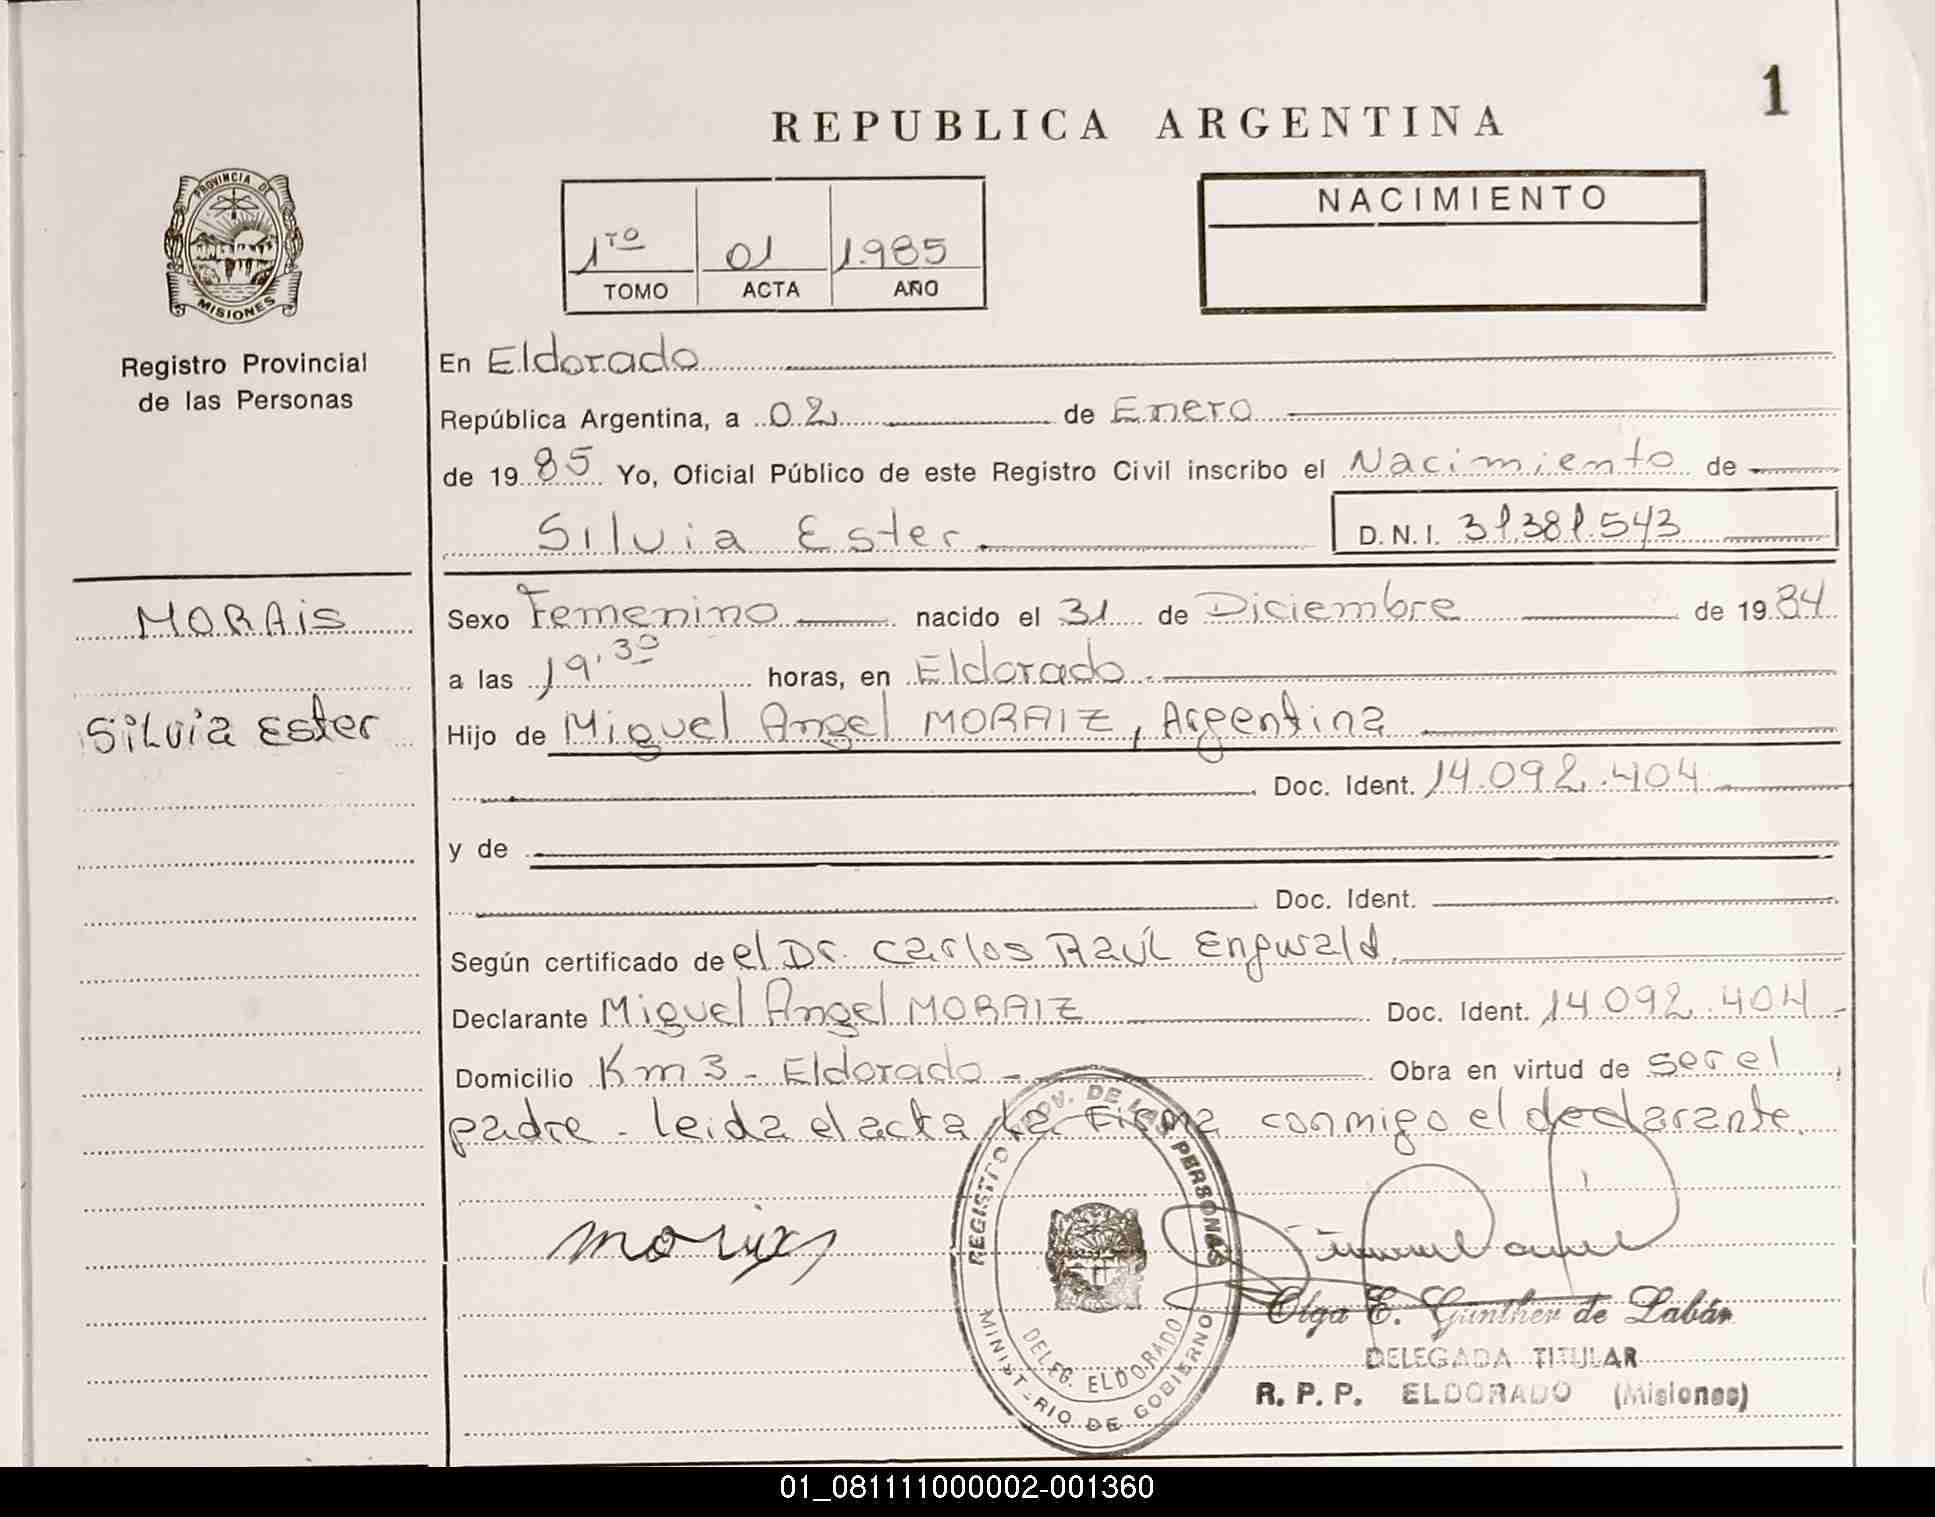 1
REPUBLICA ARGENTINA
PROVINCIA DE
MISIONES
NACIMIENTO
1ro 01 1.985
TOMO ACTA AÑO
Registro Provincial
de las Personas
En Eldorado
República Argentina, a 02 de Enero
de 1985 Yo, Oficial Público de este Registro Civil inscribo el Nacimiento de
Silvia Ester D.N.I. 31.381.543
MORAis
Sexo Femenino nacido el 31 de Diciembre de 1984
a las 19,30 horas, en Eldorado
Silvia Ester
Hijo de Miguel Angel MORAIZ, Argentina
Doc. Ident. 14.092.404
y de
Doc. Ident.
Según certificado de el Dr. Carlos Raúl Engwald.
Declarante Miguel Angel MORAIZ Doc. Ident. 14.092.404-
Domicilio Km 3 - Eldorado - Obra en virtud de ser el
padre - leida el acta la Firma conmigo el declarante.
REGISTRO PROV. DE LAS PERSONAS
DELEG. ELDORADO
MINISTERIO DE GOBIERNO
Olga E. Gunther de Labán
DELEGADA TITULAR
R. P. P. ELDORADO (Misiones)
01_081111000002-001360